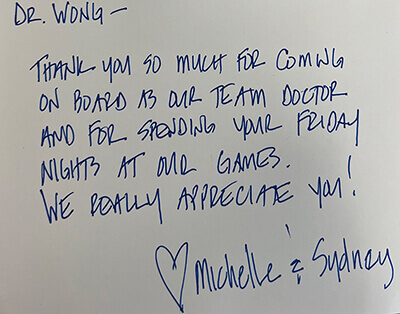 DR. WONG —
THANK YOU SO MUCH FOR COMING
ON BOARD AS OUR TEAM DOCTOR
AND FOR SPENDING YOUR FRIDAY
NIGHTS AT OUR GAMES.
WE REALLY APPRECIATE YOU!
♡ Michelle & Sydney